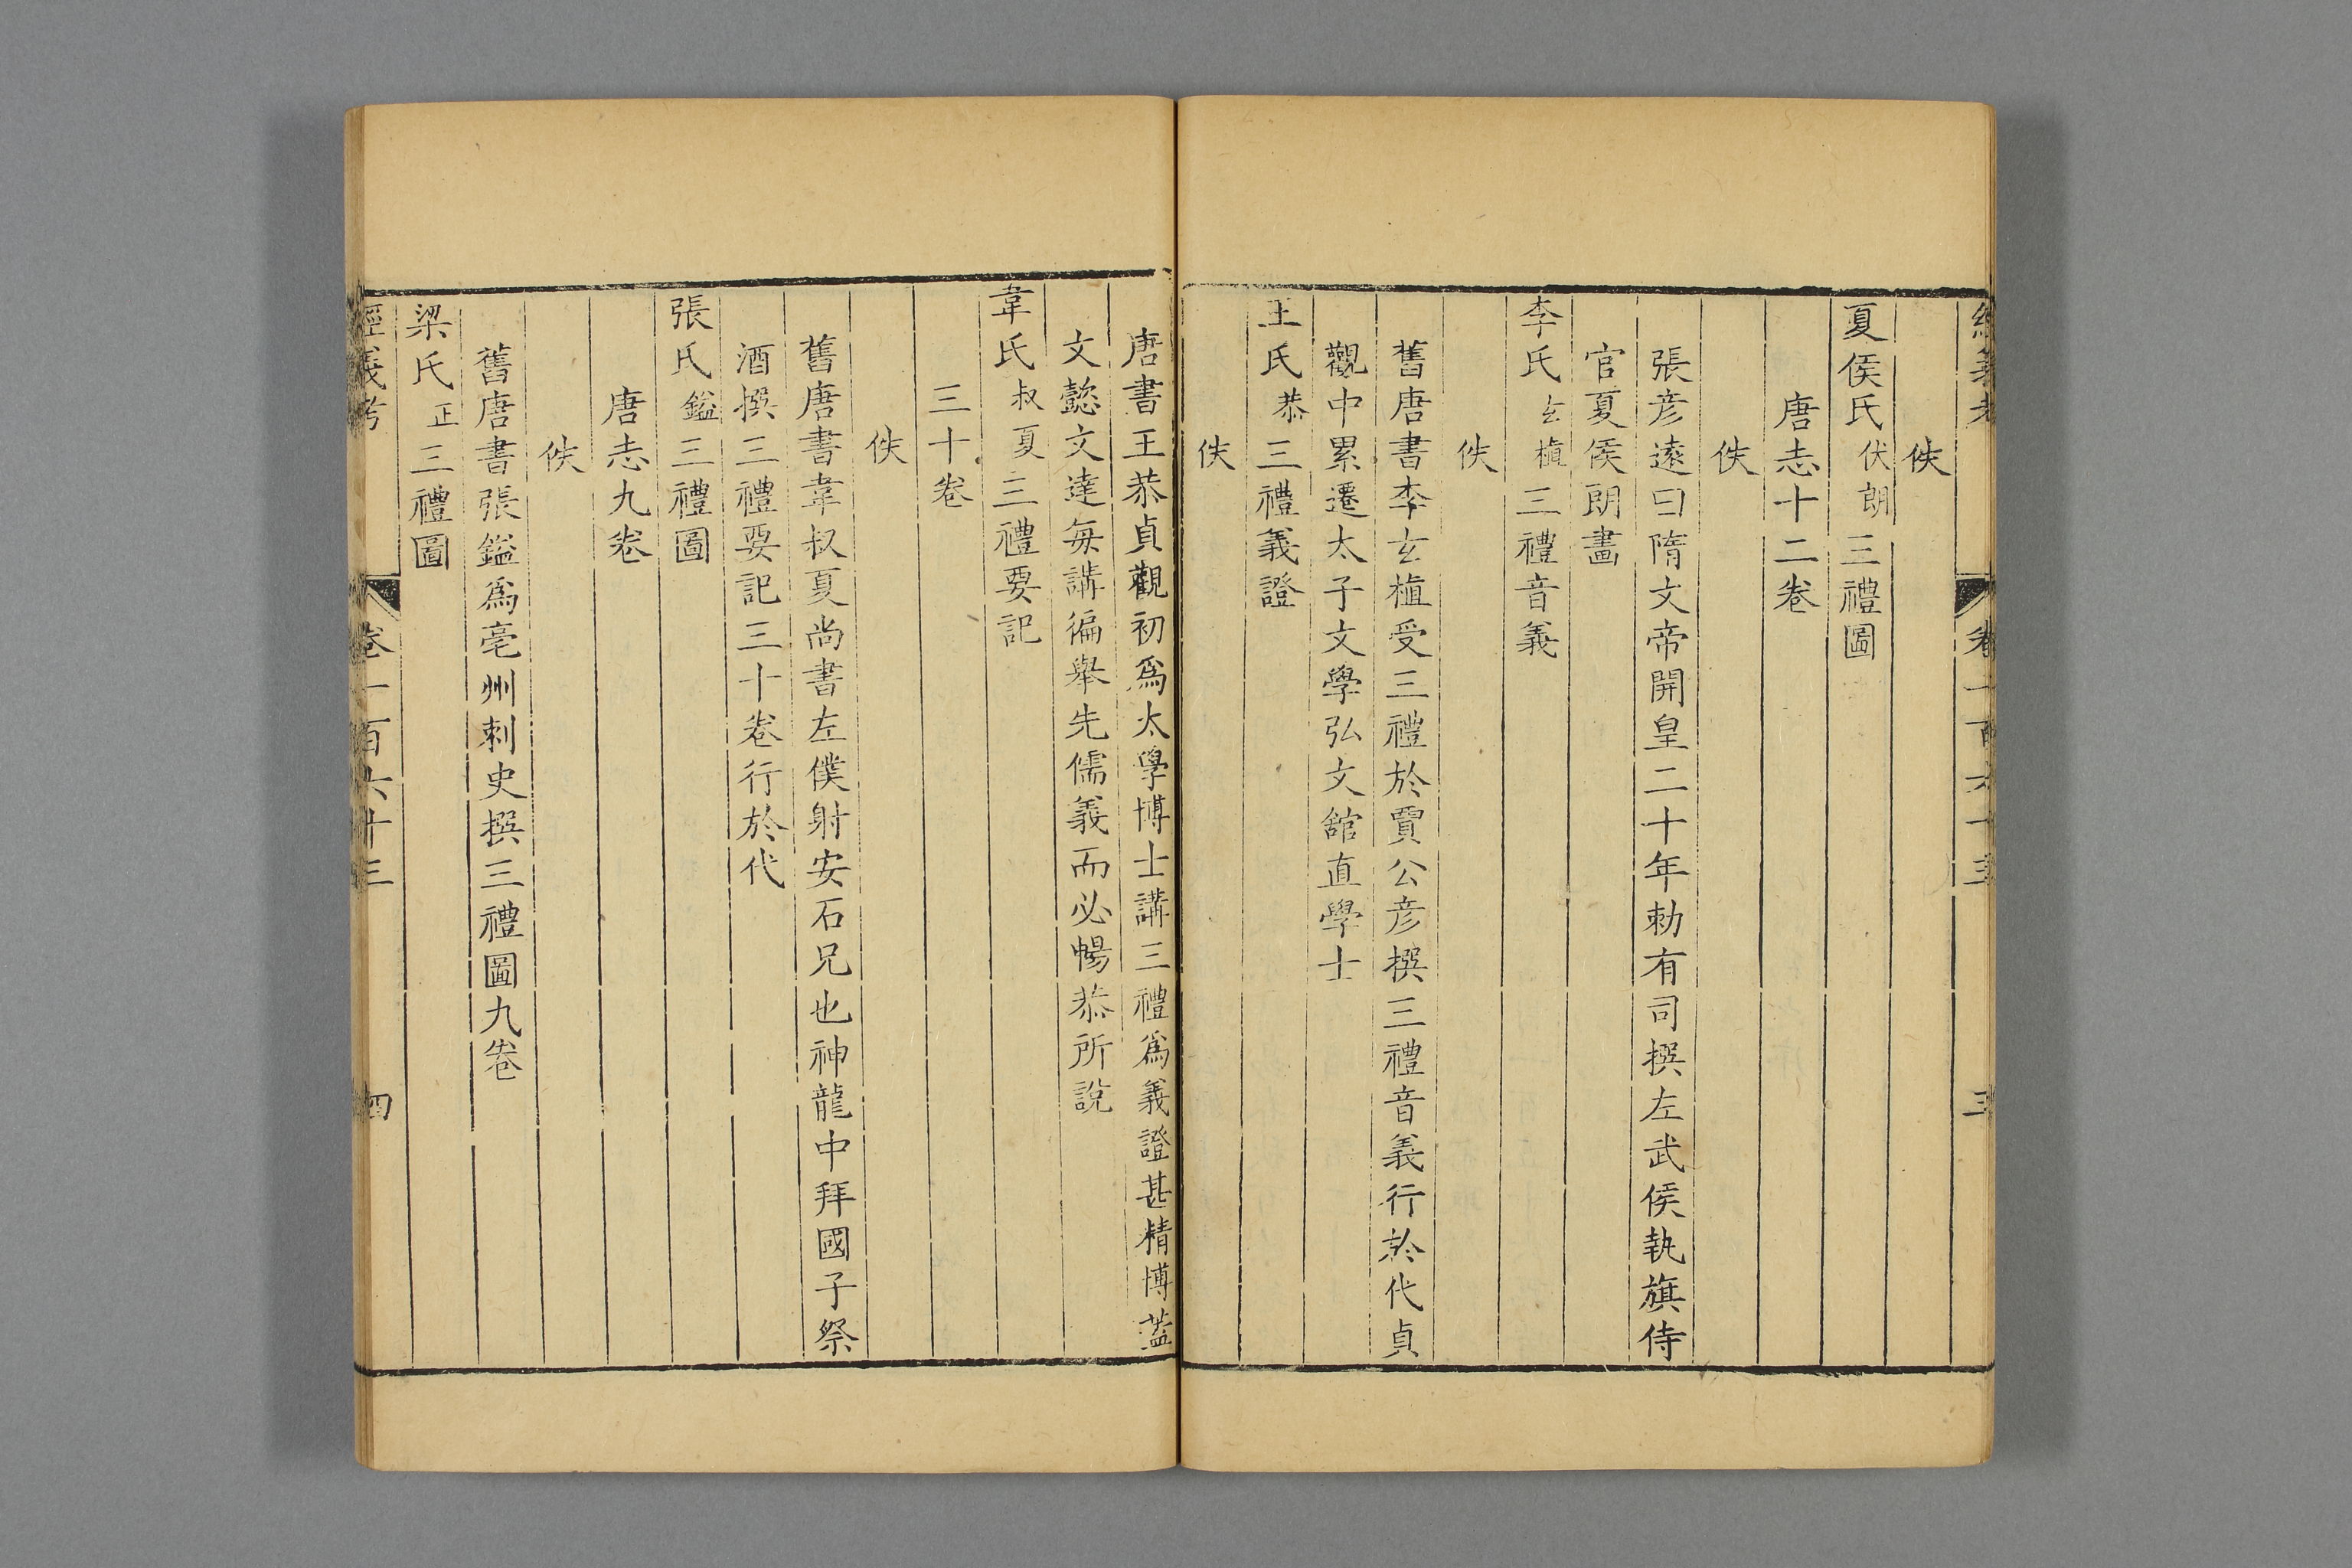 經義考 卷一百六十三 三
佚
夏侯氏伏朗三禮圖
唐志十二卷
佚
張彦遠曰隋文帝開皇二十年勅有司撰左武侯執旗侍
官夏侯朗畫
李氏玄植三禮音義
佚
舊唐書李玄植受三禮於賈公彦撰三禮音義行於代貞
觀中累遷太子文學弘文館直學士
王氏恭三禮義證
佚
唐書王恭貞觀初爲太學博士講三禮爲義證甚精博蓋
文懿文達每講徧舉先儒義而必暢恭所說
韋氏叔夏三禮要記
三十卷
佚
舊唐書韋叔夏尚書左僕射安石兄也神龍中拜國子祭
酒撰三禮要記三十卷行於代
張氏鎰三禮圖
唐志九卷
佚
舊唐書張鎰爲亳州刺史撰三禮圖九卷
梁氏正三禮圖
經義考 卷一百六十三 四